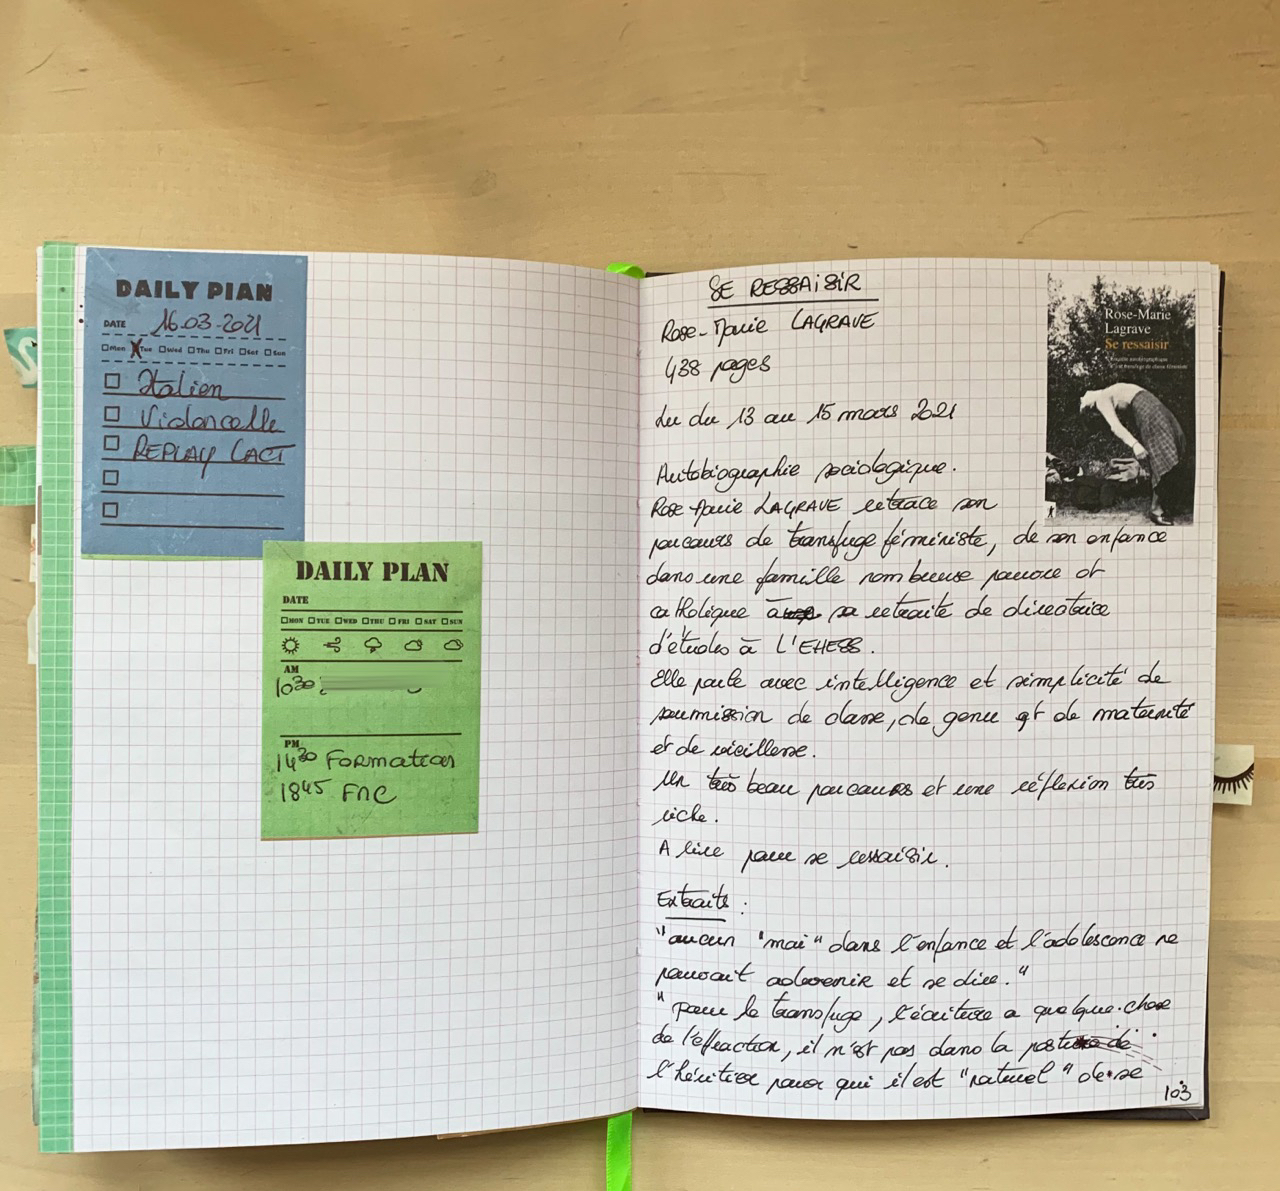 DAILY PLAN
DATE 16.03-2021
Mon Tue Wed Thu Fri Sat Sun
Italien
Violoncelle
REPLAY CACT
DAILY PLAN
DATE
MON TUE WED THU FRI SAT SUN
AM
10 30
PM
14 30 Formation
18 45 FNC
SE RESSAISIR
Rose-Marie LAGRAVE
438 pages
Lu du 13 au 15 mars 2021
Autobiographie sociologique.
Rose-Marie LAGRAVE retrace son
parcours de transfuge féministe, de son enfance
dans une famille nombreuse pauvre et
catholique à sa retraite de directrice
d'études à L'EHESS.
Elle parle avec intelligence et simplicité de
soumission de classe, de genre et de maternité
et de vieillesse.
Un très beau parcours et une réflexion très
riche.
A lire pour se ressaisir.
Extraits :
"aucun "moi" dans l'enfance et l'adolescence ne
pouvait advenir et se dire."
"pour le transfuge, l'écriture a quelque chose
de l'effraction, il n'est pas dans la posture de
l'héritier pour qui il est "naturel" de se
103
Rose-Marie
Lagrave
Se ressaisir